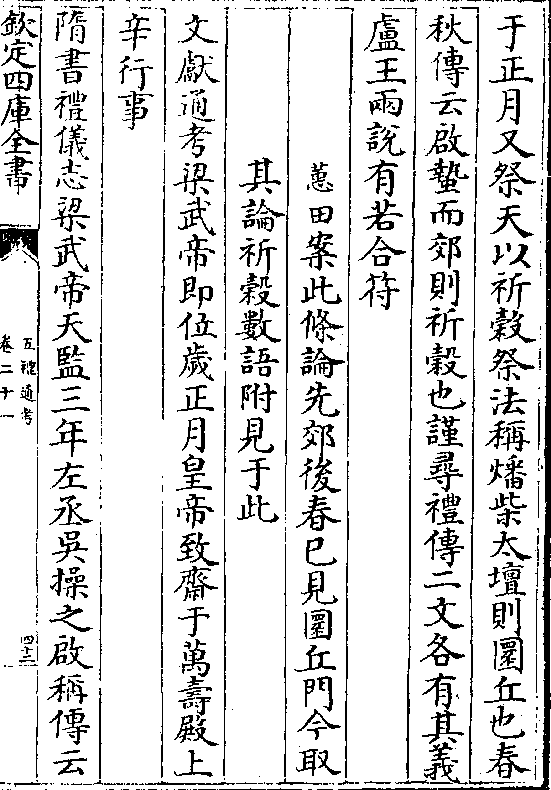 于正月又祭天以祈穀祭法稱燔柴太壇則圜丘也春
秋傳云啟蟄而郊則祈穀也謹尋禮傳二文各有其義
盧王兩說有若合符
蕙田案此條論先郊後春已見圜丘門今取
其論祈穀數語附見于此
文獻通考梁武帝即位歲正月皇帝致齋于萬壽殿上
辛行事
隋書禮儀志梁武帝天監三年左丞吳操之啟稱傳云
欽定四庫全書
五禮通考
卷二十一
四十二